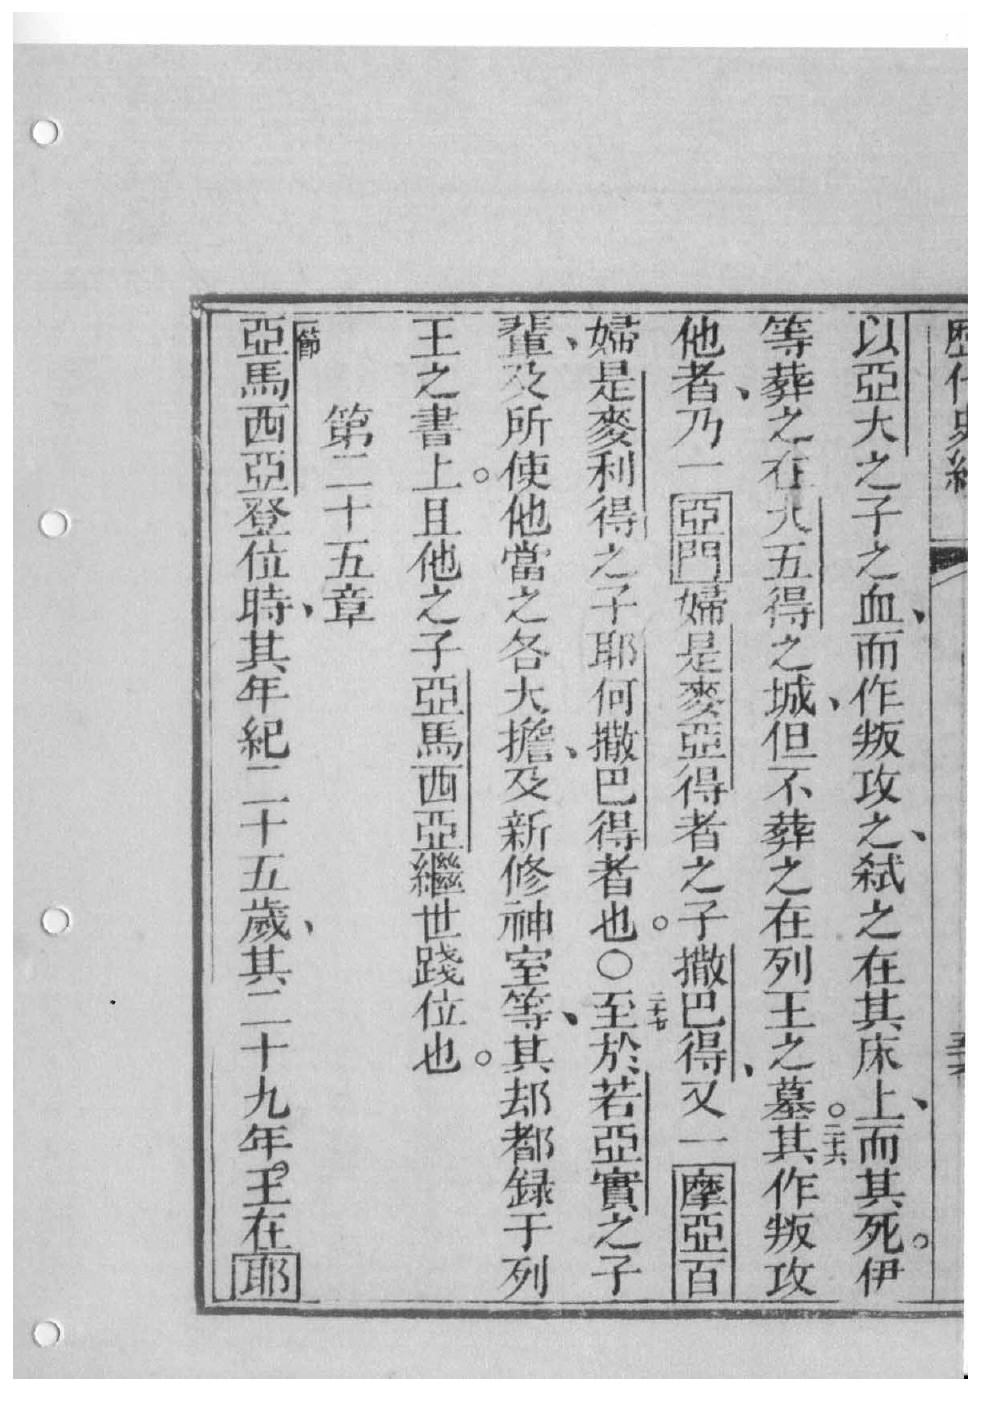 歷代史紀
以亞大之子之血、而作叛攻之、弒之在其床上、而其死。伊
等葬之在大五得之城、但不葬之在列王之墓。二十六其作叛攻
他者、乃一亞門婦是麥亞得者之子撒巴得、又一摩亞百
婦是麥利得之子耶何撒巴得者也。○二十七至於若亞實之子
輩、及所使他當之各大擔、及新修神室等、其却都録于列
王之書上。且他之子亞馬西亞繼世踐位也。
第二十五章
一節亞馬西亞登位時、其年紀二十五歲、其二十九年。王在耶